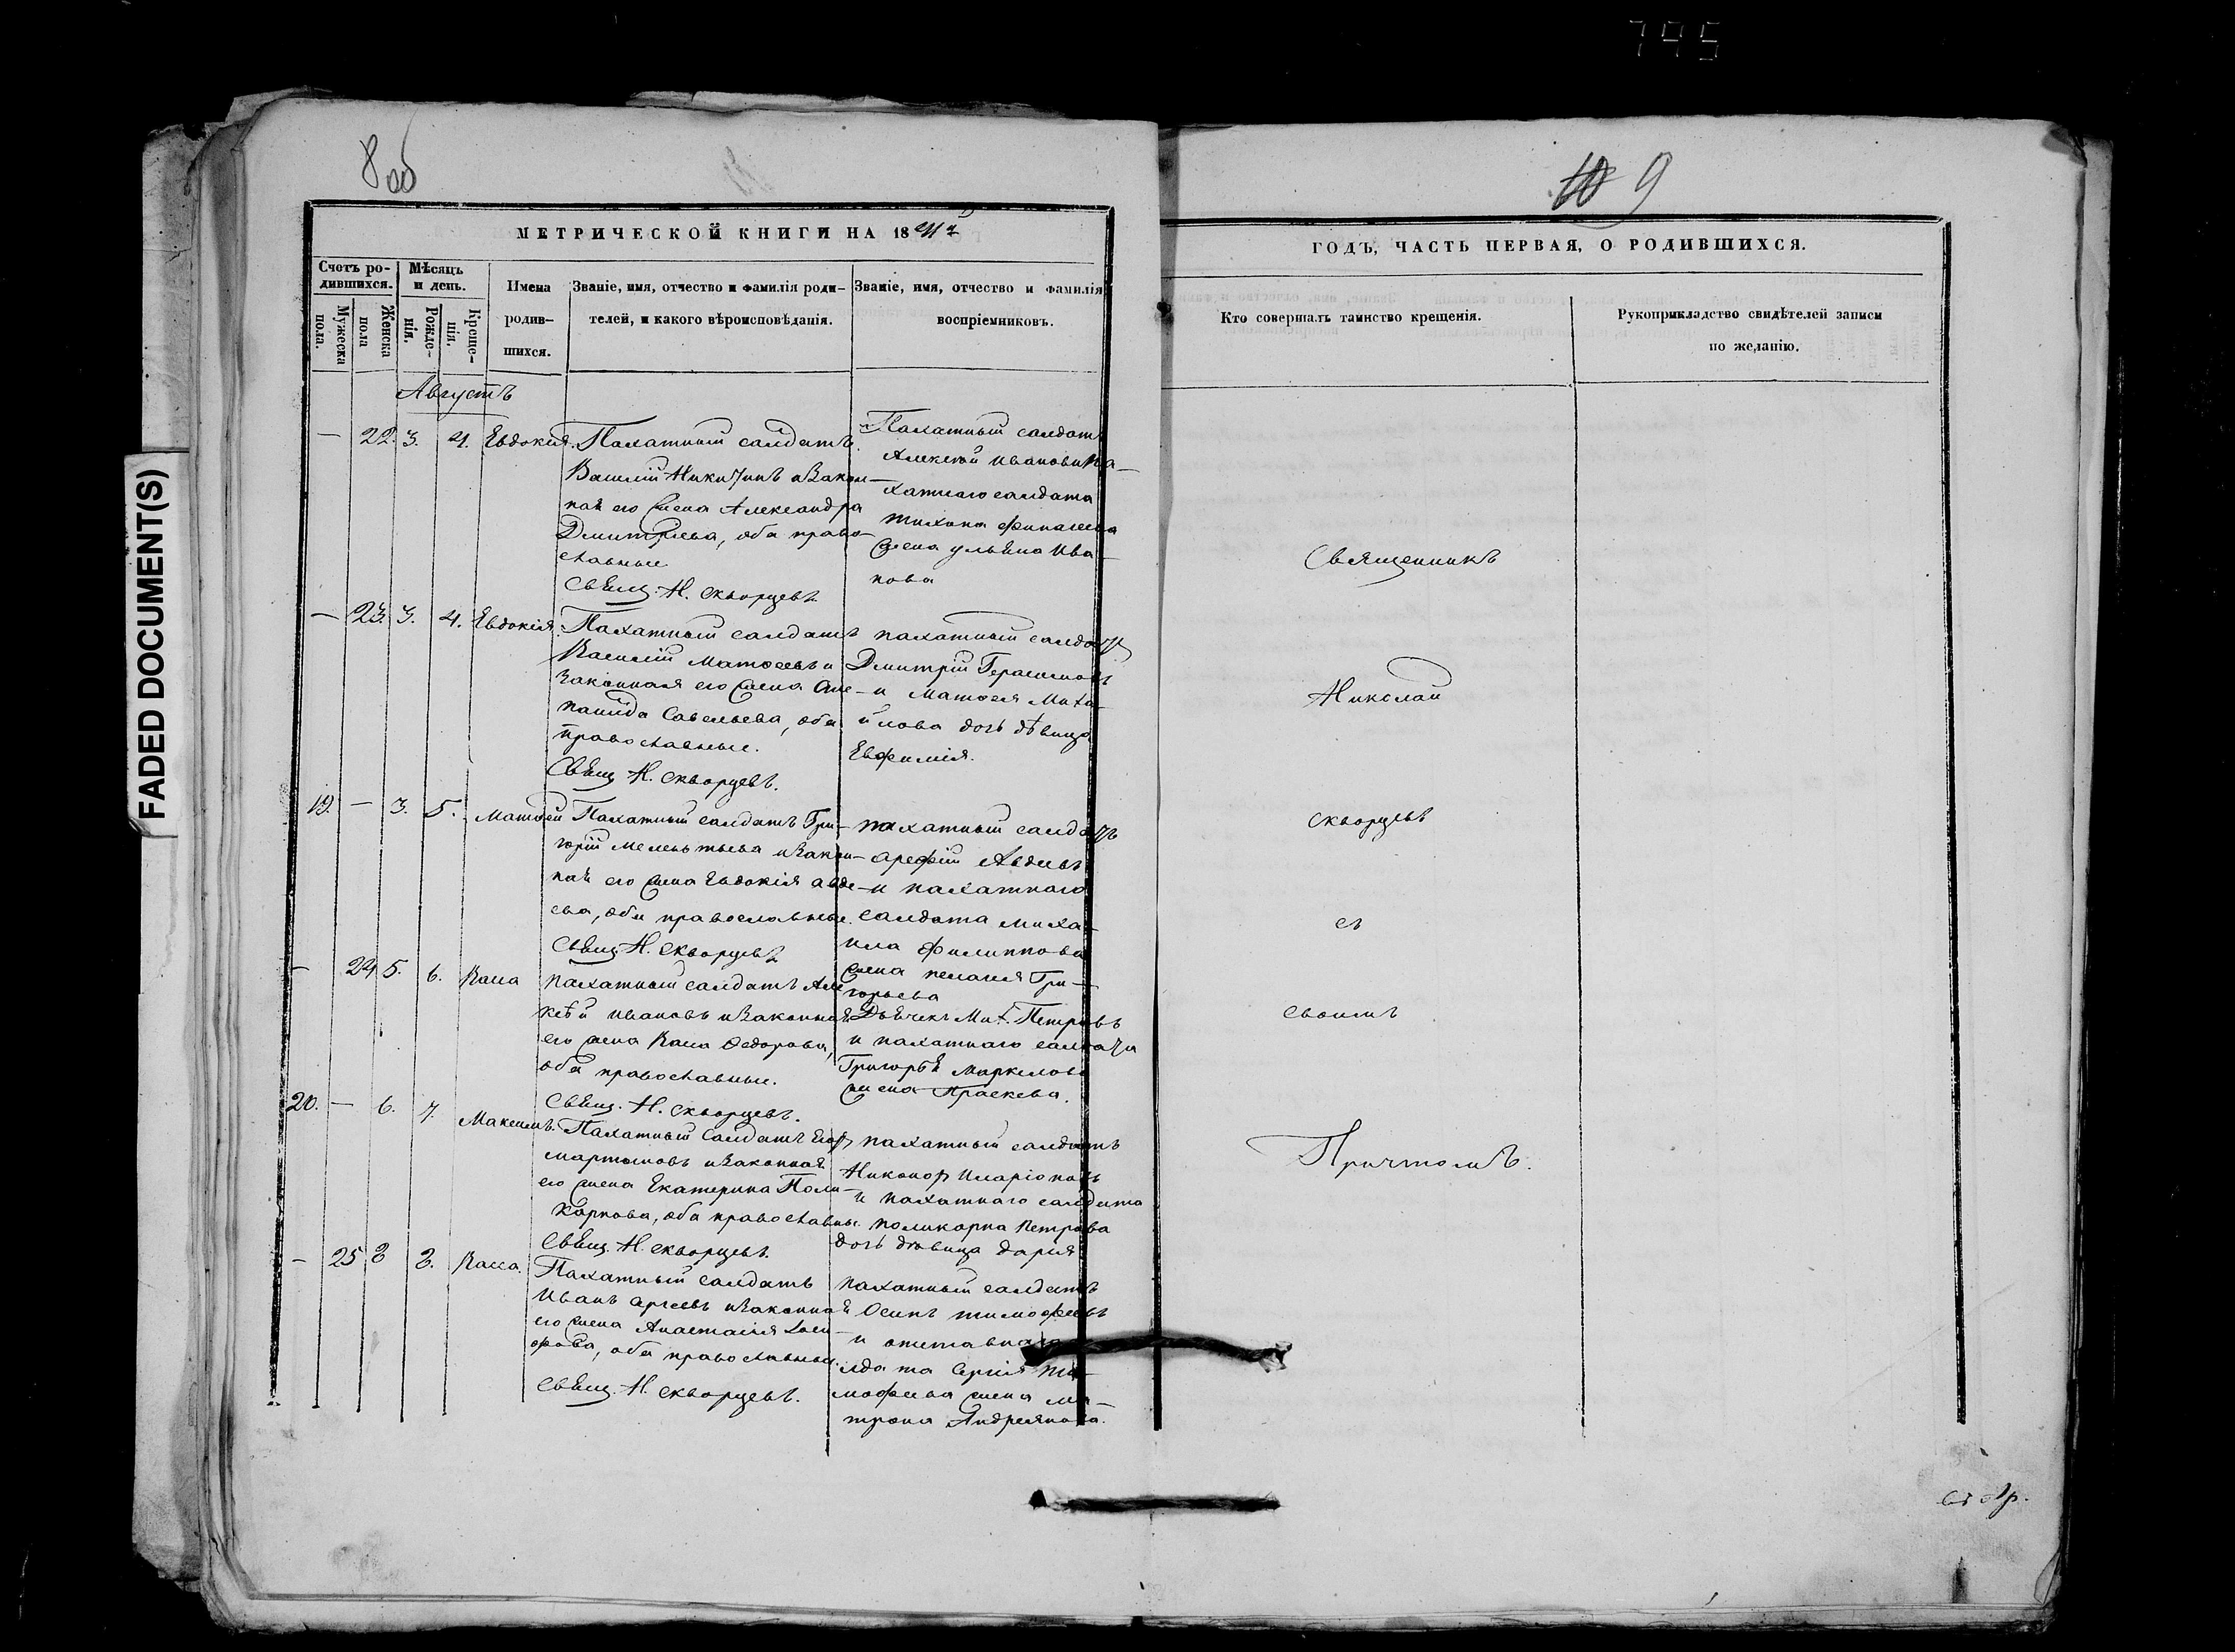 745
8 об
10 9
МЕТРИЧЕСКОЙ КНИГИ НА 18
ГОДЪ, ЧАСТЬ ПЕРВАЯ, О РОДИВШИХСЯ.
Счетъ ро-
дившихся.
Мужеска
пола.
Женска
пола
Мѣсяцъ
и день.
Рожде-
нія.
Креще-
нія.
Имена
родив-
шихся.
Званіе, имя, отчество и фамилія роди-
телей, и какого вѣроисповѣданія.
Званіе, имя, отчество и фамилія
воспріемниковъ.
Кто совершалъ таинство крещенія.
Рукоприкладство свидѣтелей записи
по желанію.
Августъ
— 22. 3. 4. Евдокія.
Пахатный салдатъ
Василій Никитинъ и Закон-
ная его жена Александра
Дмитріева, оба право-
славные
Свящ. Н. Скворцевъ.
Пахатный салдатъ
Алексѣй Ивановъ и Па-
хатнаго салдата
Тихона
жена Ульяна Ива-
нова
— 23. 3. 4. Евдокія.
Пахатный салдатъ
Василій Матвеевъ и
Законная его жена Сте-
панида Савельева, оба
православные.
Свящ. Н. Скворцевъ.
пахатный салдатъ
Дмитрій Герасимовъ
и Матвея Миха-
йлова дочь дѣвица
Евфимія.
19. — 3. 5. Матвей
Пахатный салдатъ Гри-
горій Мелентьевъ и Закон-
ная его жена Евдокія Авде-
ева, оба православные.
Свящ. Н. Скворцевъ
пахатный салдатъ
Арефій Авдевъ
и пахатнаго
салдата Миха-
ила Филиппова
жена Пелагея Гри-
горьева
— 24 5. 6. Васса
пахатный салдатъ Але-
ксѣй Ивановъ и Законная
его жена Васса Федорова,
оба православные.
Свящ. Н. Скворцевъ.
Дьячекъ Мих. Петровъ
и пахатнаго салдата
Григорья Маркелова
жена Праскева.
20. — 6. 7. Максимъ.
Пахатный Салдатъ Егоръ
Мартыновъ и Законная
его жена Екатерина Поли-
карпова, оба православные
Свящ. Н. Скворцевъ.
пахатный салдатъ
Никоноръ Иларіоновъ
и пахатнаго салдата
Поликарпа Петрова
дочь дѣвица Дарія
— 25 8 8. Васса.
Пахатный салдатъ
Иванъ Сргеевъ и Законная
его жена Анастасія
оба православные.
Свящ. Н. Скворцевъ.
пахатный салдатъ
Осипъ Тимофеевъ
и отставнаго
лдата Сергія Ти-
мофеева жена Ма-
трона Андреянова.
Священникъ
Николай
Скворцевъ
съ
своимъ
Причтомъ.